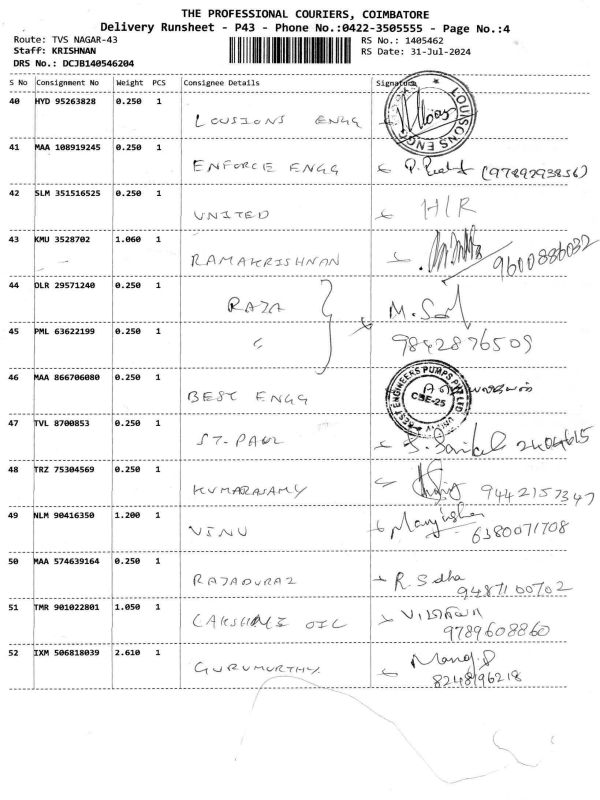 THE PROFESSIONAL COURIERS, COIMBATORE
Delivery Runsheet - P43 - Phone No.:0422-3505555 - Page No.:4
Route: TVS NAGAR-43 RS No.: 1405462
Staff: KRISHNAN RS Date: 31-Jul-2024
DRS No.: DCJB140546204
S No Consignment No Weight PCS Consignee Details Signature
40 HYD 95263828 0.250 1
LOUSIONS ENGG
LOUISONS ENGG
41 MAA 108919245 0.250 1
ENFORCE ENGG (9789293856)
42 SLM 351516525 0.250 1
UNITED H/R
43 KMU 3528702 1.060 1
RAMAKRISHNAN 9600886032
44 DLR 29571240 0.250 1
RAJA M. 
45 PML 63622199 0.250 1
" 9842876509
46 MAA 866706080 0.250 1
BEST ENGG
BEST ENGINEERS PUMPS PVT LTD.
CBE-25
47 TVL 8700853 0.250 1
ST-PAUL 2404615
48 TRZ 75304569 0.250 1
KUMARASAMY 9442157347
49 NLM 90416350 1.200 1
VINU 6380071708
50 MAA 574639164 0.250 1
RAJADURAI R. Sudha
9487100702
51 TMR 901022801 1.050 1
LAKSHMI OIL
9789608860
52 IXM 506818039 2.610 1
GURUMURTHY. Manoj.P
8248196218